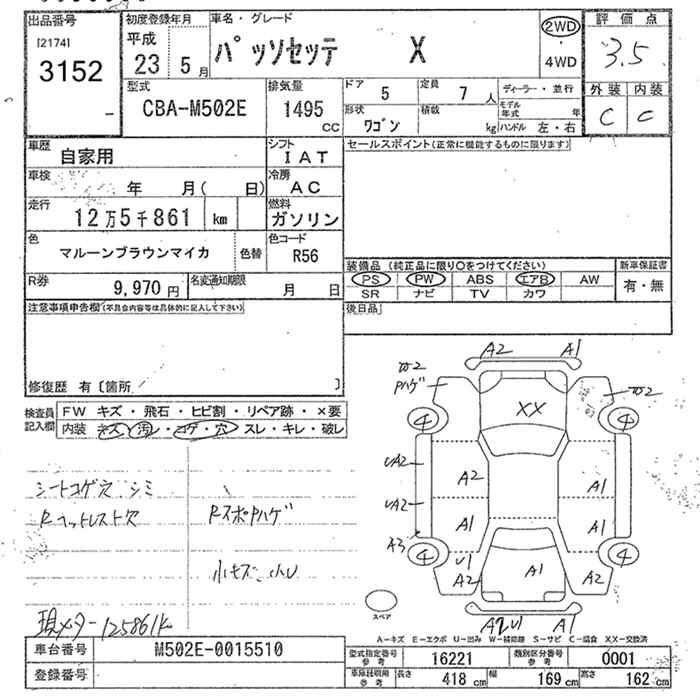 出品番号
[2174]
3152
初度登録年月
平成
23 5月
車名・グレード
パッソセッテ X
2WD
4WD
評価点
3.5
外装 内装
C C
型式
CBA-M502E
排気量
1495
CC
ドア
5
定員
7人
形状
ワゴン
積載
kg
ディーラー・並行
モデル年式 年
ハンドル 左・右
車歴
自家用
シフト
IAT
車検
年 月( 日)
冷房
AC
走行
12万5千861 km
燃料
ガソリン
色
マルーンブラウンマイカ
色替
色コード
R56
R券
9,970円
名変通知期限
月 日
セールスポイント(正常に機能するものに限ります)
装備品 (純正品に限り〇をつけてください)
PS PW ABS エアB AW
SR ナビ TV カワ
新車保証書
有・無
後日品
注意事項申告欄(不具合内容等は具体的に記入して下さい)
修復歴 有〔箇所 〕
検査員記入欄
FW キズ・飛石・ヒビ割・リペア跡・×要
内装 キズ・汚レ・コゲ・穴・スレ・キレ・破レ
シートコゲ穴、シミ
Rヘットレスト穴
RスポPハゲ
小キズ、小凹
現メーター125861k
A2 A1
Pハゲ
XX
4 4
UA2
A2
A1
UA2
A1
A1
A3
4 4
U1
A2
A1
A2
A2U1 A1
スペア
A-キズ E-エクボ U-凹み W-補修跡 S-サビ C-腐食 XX-交換済
車台番号
M502E-0015510
登録番号
型式指定番号
参考
16221
類別区分番号
参考
0001
車庫証明用
参考
長さ
418 cm
幅
169 cm
高さ
162 cm